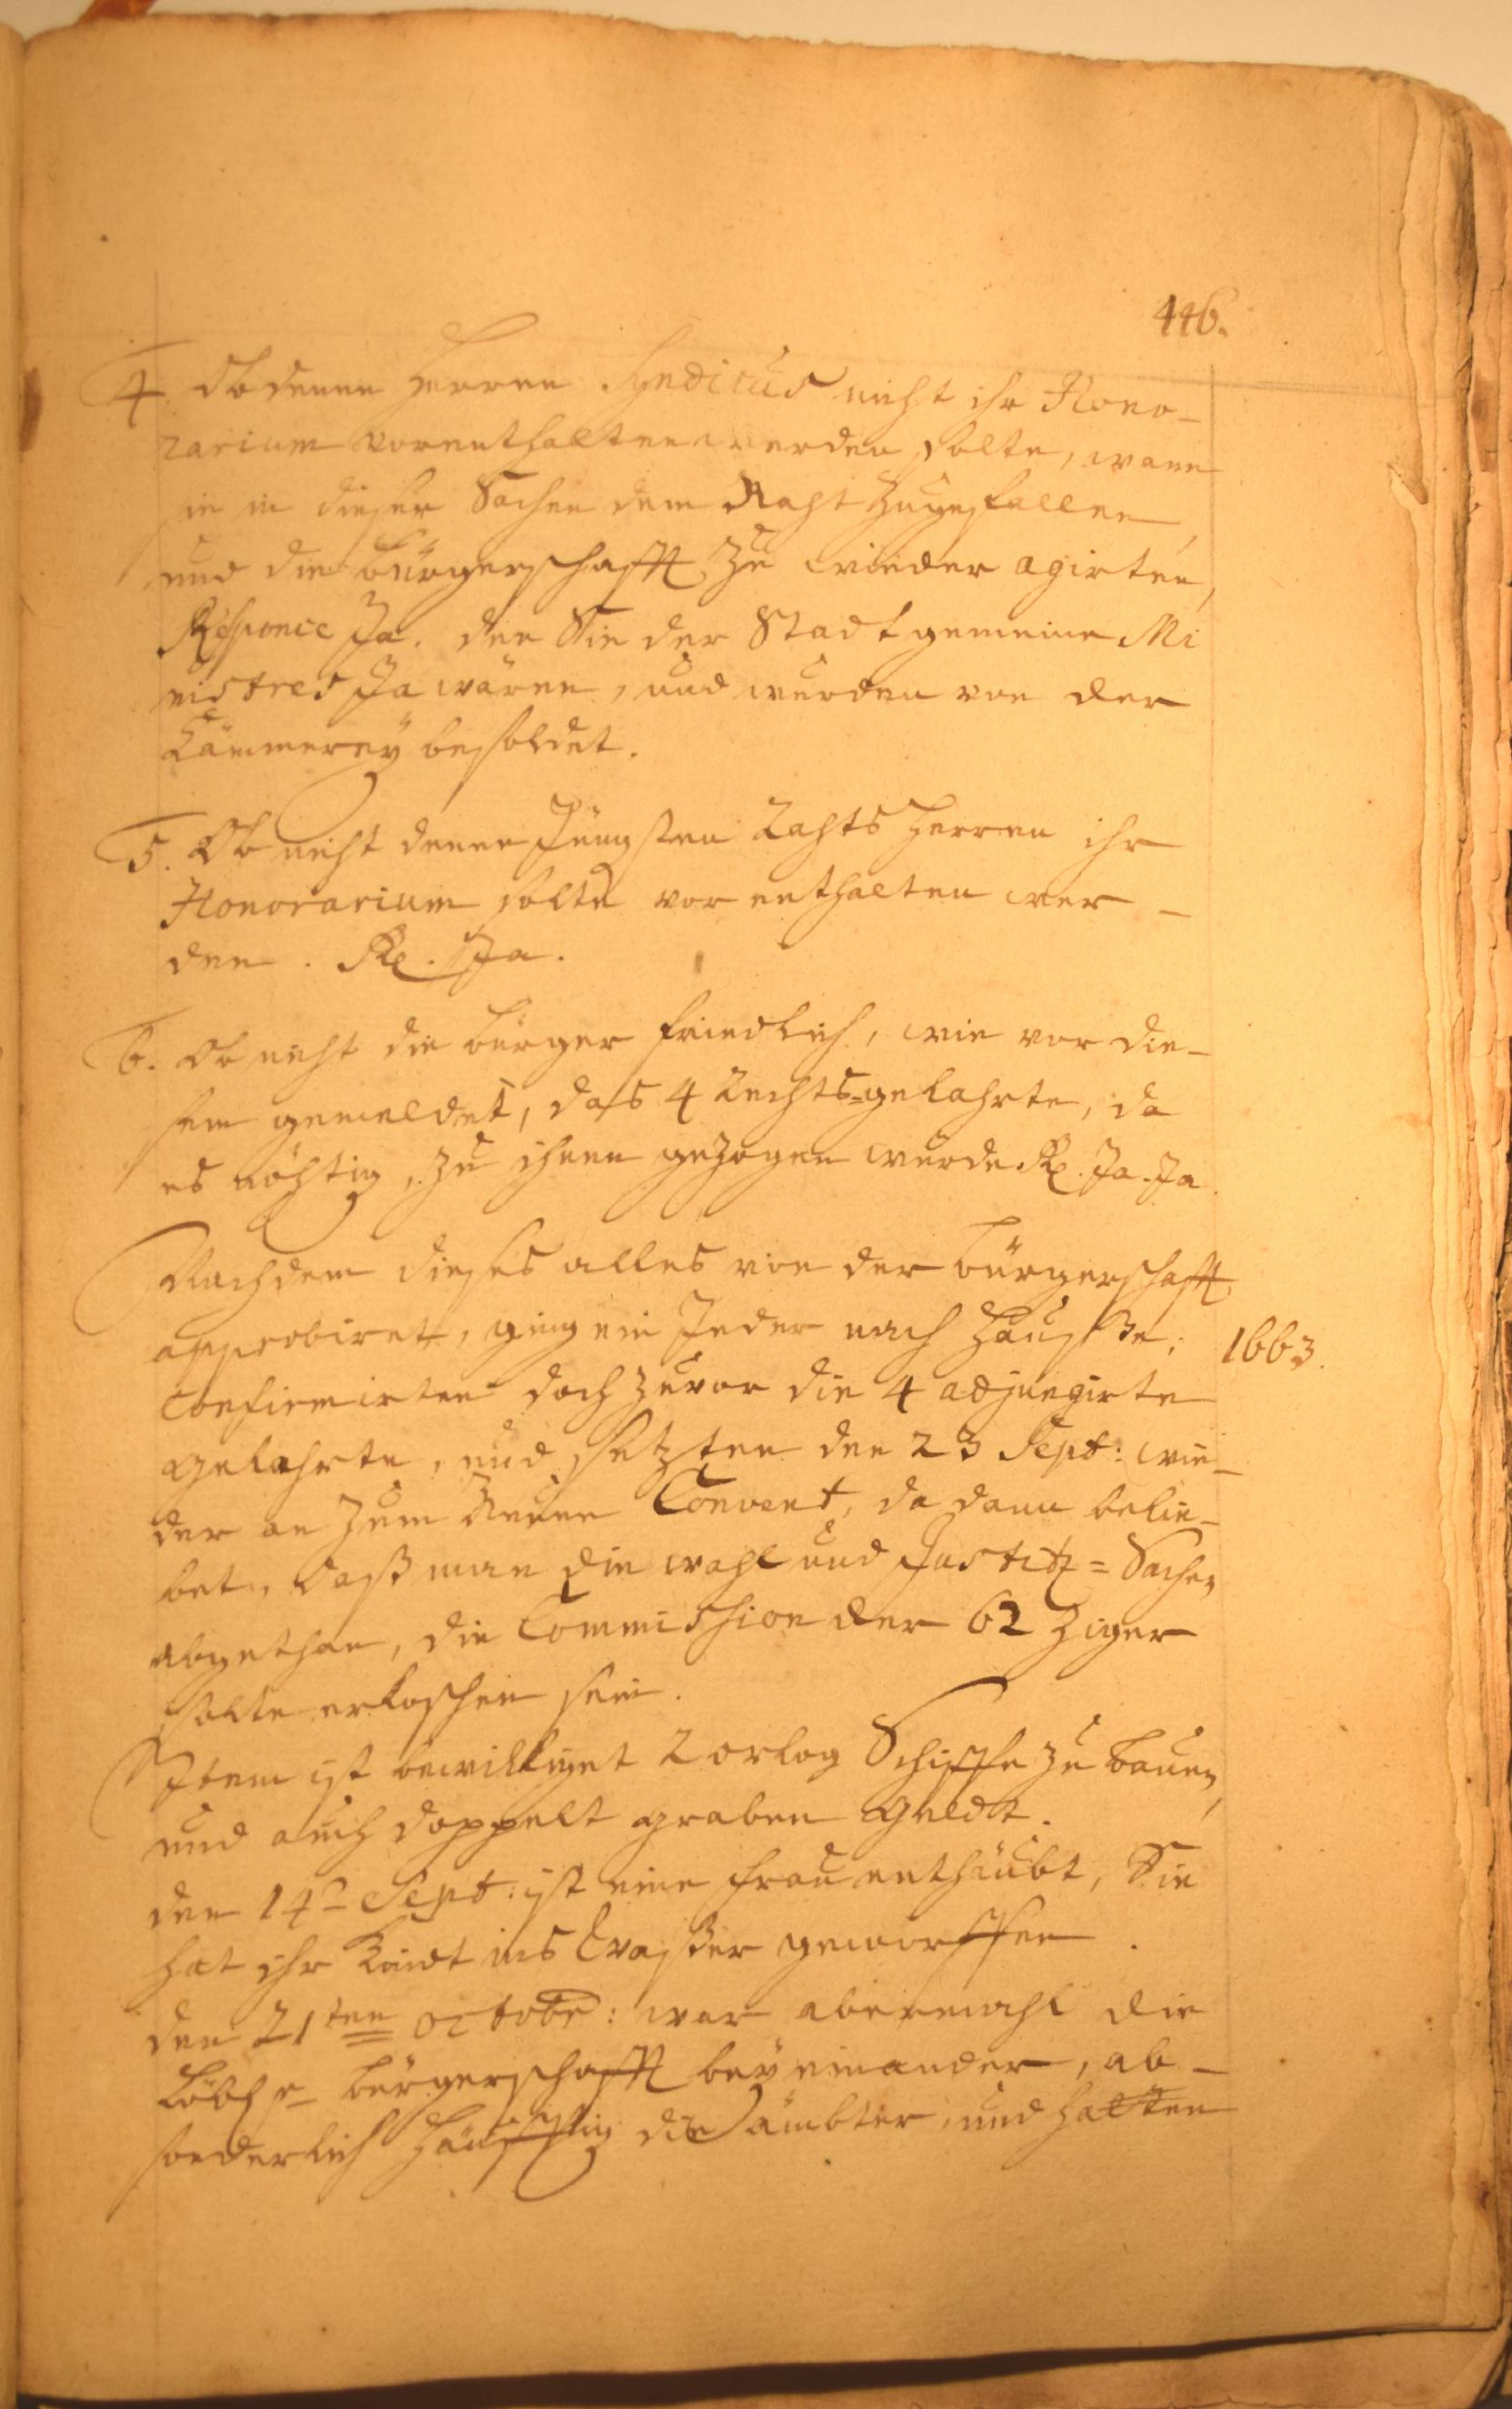 446.
4 Ob denen Herren Syndicus nicht ihr Hono-
rarium vorenthalten werden solte, wann
sie in dieser Sachen dem Raht zugefallen,
und die Bürgerschafft zu wieder agirten,
Responce Ja. den Sie der Stadt gemeine Mi
nistres Ja wären, und wurden von der
Cämmerey besoldet.
5. Ob nicht denen Jüngsten Rahts Herren ihr
Honorarium solte vor enthalten wer-
den. Re. Ja.
6. Ob nicht die Bürger friedlich, wie vor die-
sem gemeldet, das 4 Rechts-gelahrte, da
es nöhtig, zu ihnen gezogen würde Re. Ja. Ja.
Nachdem dieses alles von der Bürgerschafft
approbiret, ging ein Jeder nach Hauße;
1663.
Confirmirten doch zuvor die 4 adjungirte
gelahrte, und setzten den 23 Sept: wie-
der an zum Neuen Convent, da dann belie-
bet, daß man die wahl und Justitz = Sachen
abgethan, die Commission der 62 ziger
solte erloschen sein.
Item ist bewilliget 2 orlog Schiffe zu bauen,
und auch doppelt graben geldt.
den 14t Sept: ist eine Frau enthäubt, Sie
hat ihr Kindt ins Waßer geworffen.
den 21ten Octobr: war abermahl die
Löbl e Bürgerschafft beyeinander, ab-
sonderlich häuffig die ämbter, und hatten